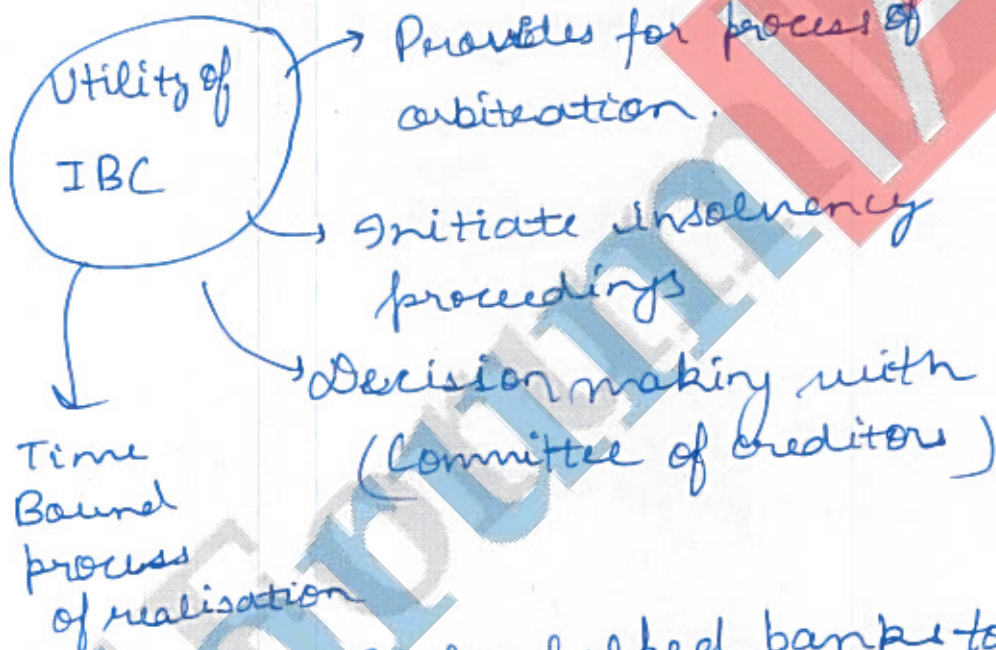 Utility of
IBC
Provides for process of
arbiteation.
Initiate insolvency
proceedings
Decision making with
(Committee of creditors)
Time
Bound
process
of realisation
banks to